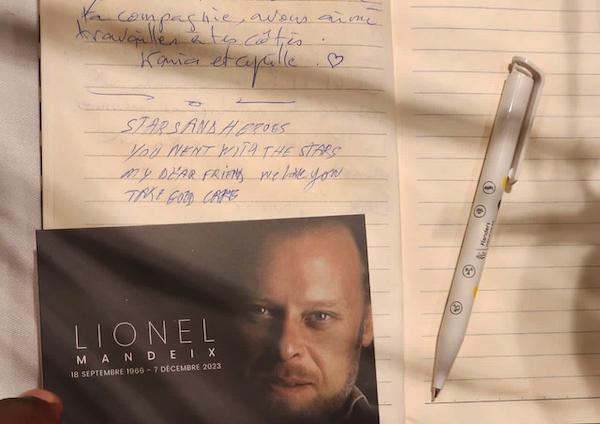 ta compagnie, avons aimé
travailler à tes côtés.
et
STARS AND HEROES
YOU WENT WITH THE STARS
MY DEAR FRIEND we love you
TAKE GOOD CARE
LIONEL
MANDEIX
18 SEPTEMBRE 1966 - 7 DÉCEMBRE 2023
Flanders